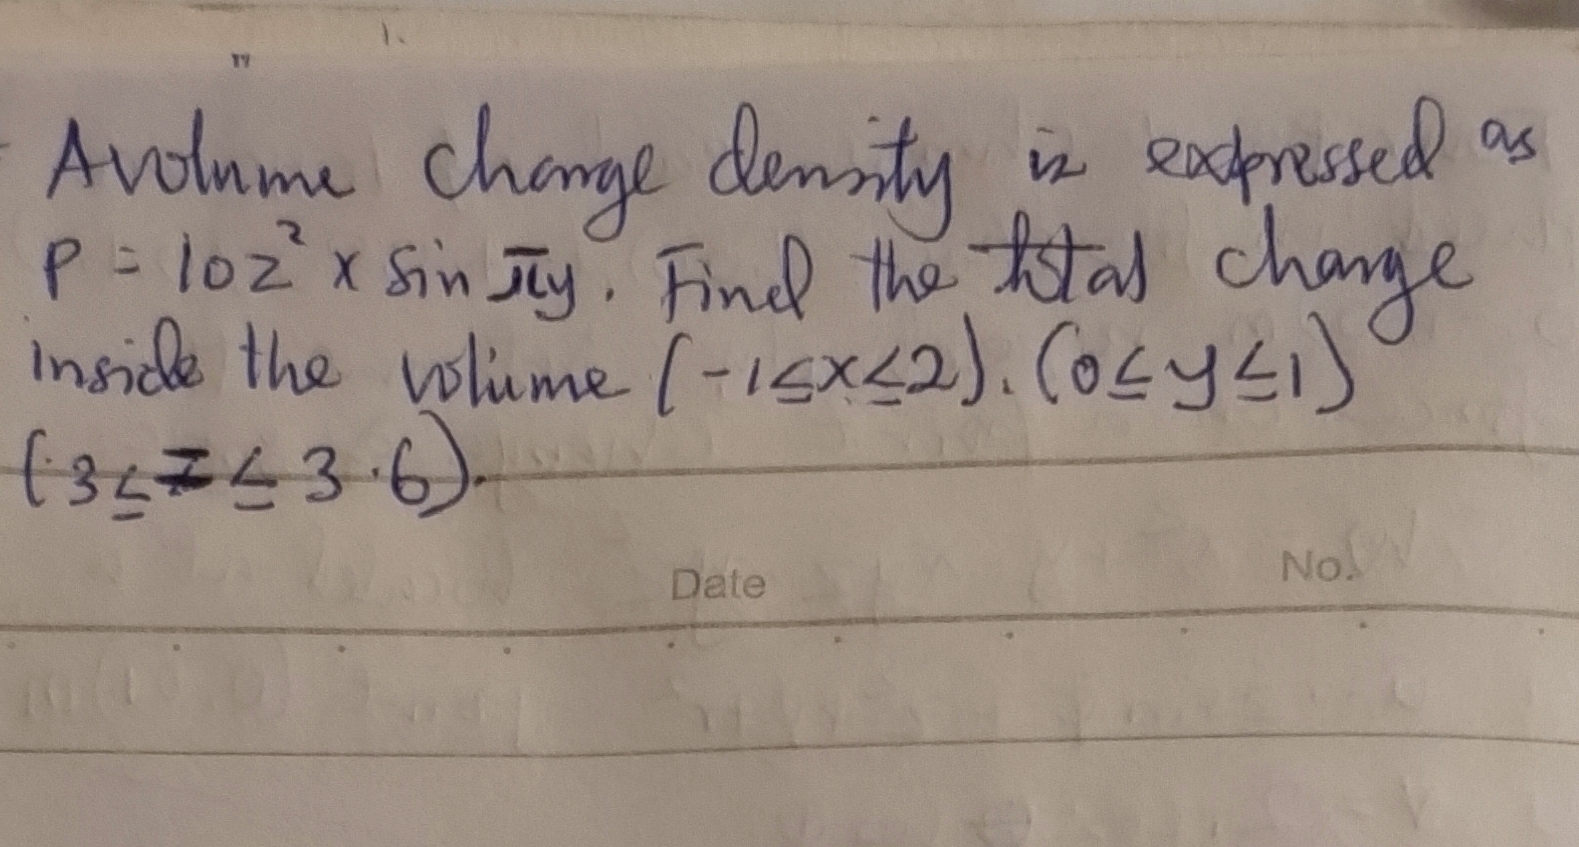 1.
"
A volume charge density is expressed as
ρ = 10z² x sin πy. Find the total charge
inside the volume (-1≤x≤2). (0≤y≤1)
(3≤z≤3.6).
Date No.